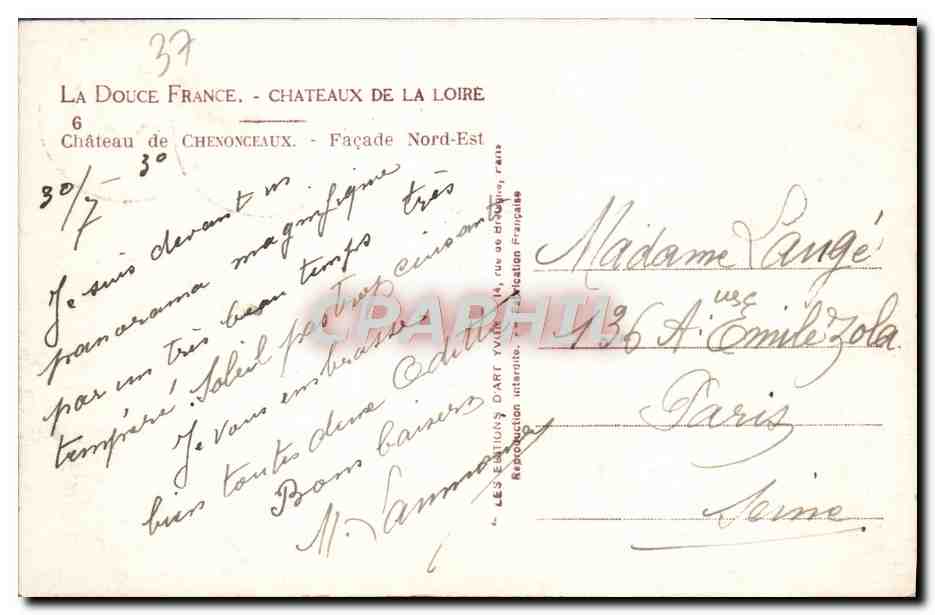 37
LA DOUCE FRANCE. - CHATEAUX DE LA LOIRE
6
Château de CHENONCEAUX. - Façade Nord-Est
30/7 - 30
Je suis devant un
panorama magnifique
par un très beau temps très
tempéré. Soleil pas trop cuisant
Je vous embrasse
bien toutes deux Odette
Bons baisers
M.
CPARHTL
LES EDITIONS D'ART YVON, 14, rue de Bretagne, Paris
Reproduction interdite. Fabrication Française
Madame Laugé
136 A. Emile Zola
Paris
Seine